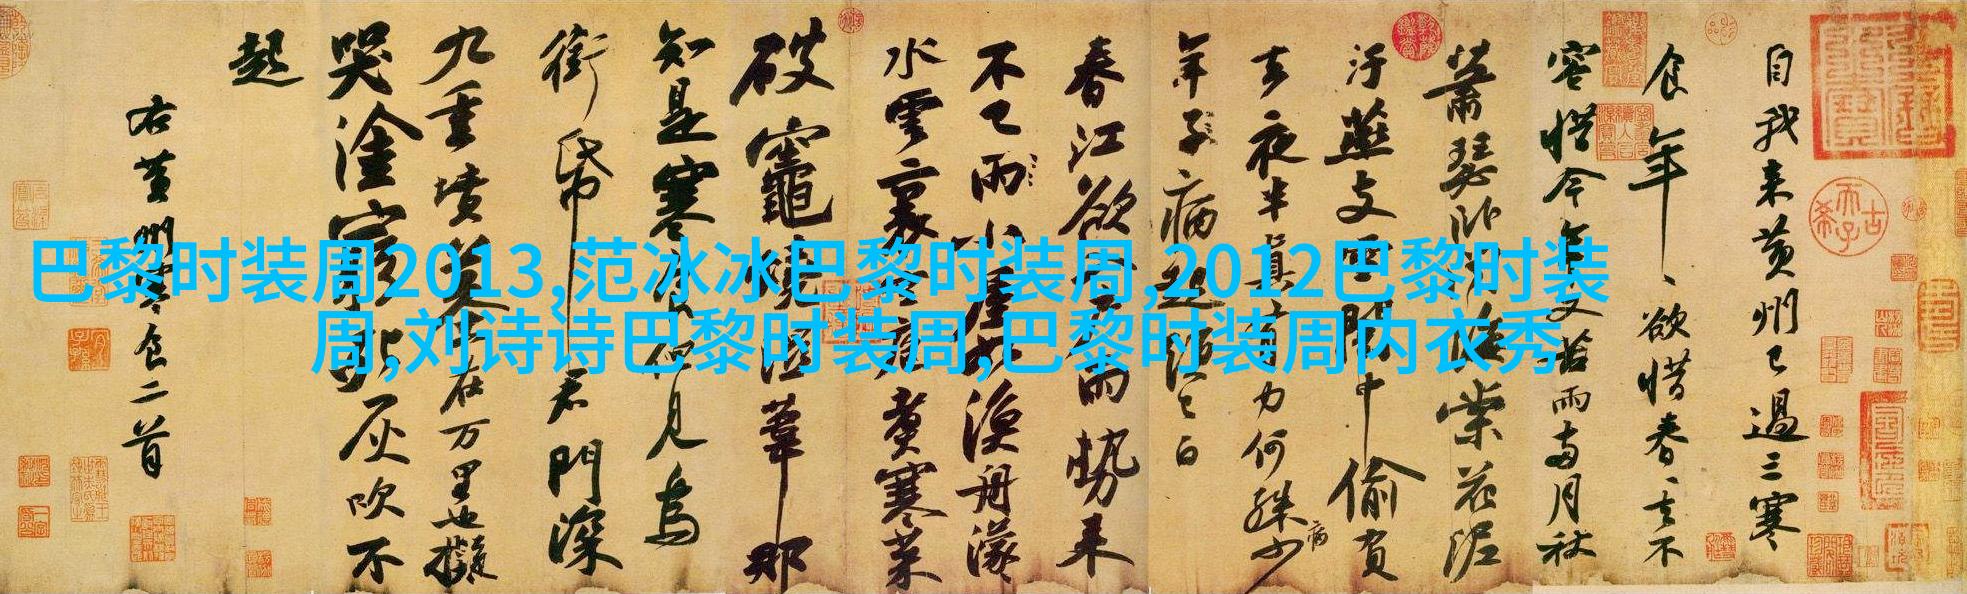 巴黎时装周2013,范冰冰巴黎时装周,2012巴黎时装
周,刘诗诗巴黎时装周,巴黎时装周内衣秀
自我来黄州已過三寒
食年〻欲惜春〻去不
容惜今年又苦雨兩月秋
蕭瑟卧聞海棠花泥
汙燕支雪闇中偷負
去夜半真有力何殊少
年子病起頭已白
春江欲入户雨勢来
不已雨小屋如漁舟濛
水雲裏空庖煮寒菜
破竈燒濕葦那
知是寒食但見烏
銜帋君門深
九重墳墓在万里也擬
哭塗窮死灰吹不
起
右黄州寒食二首